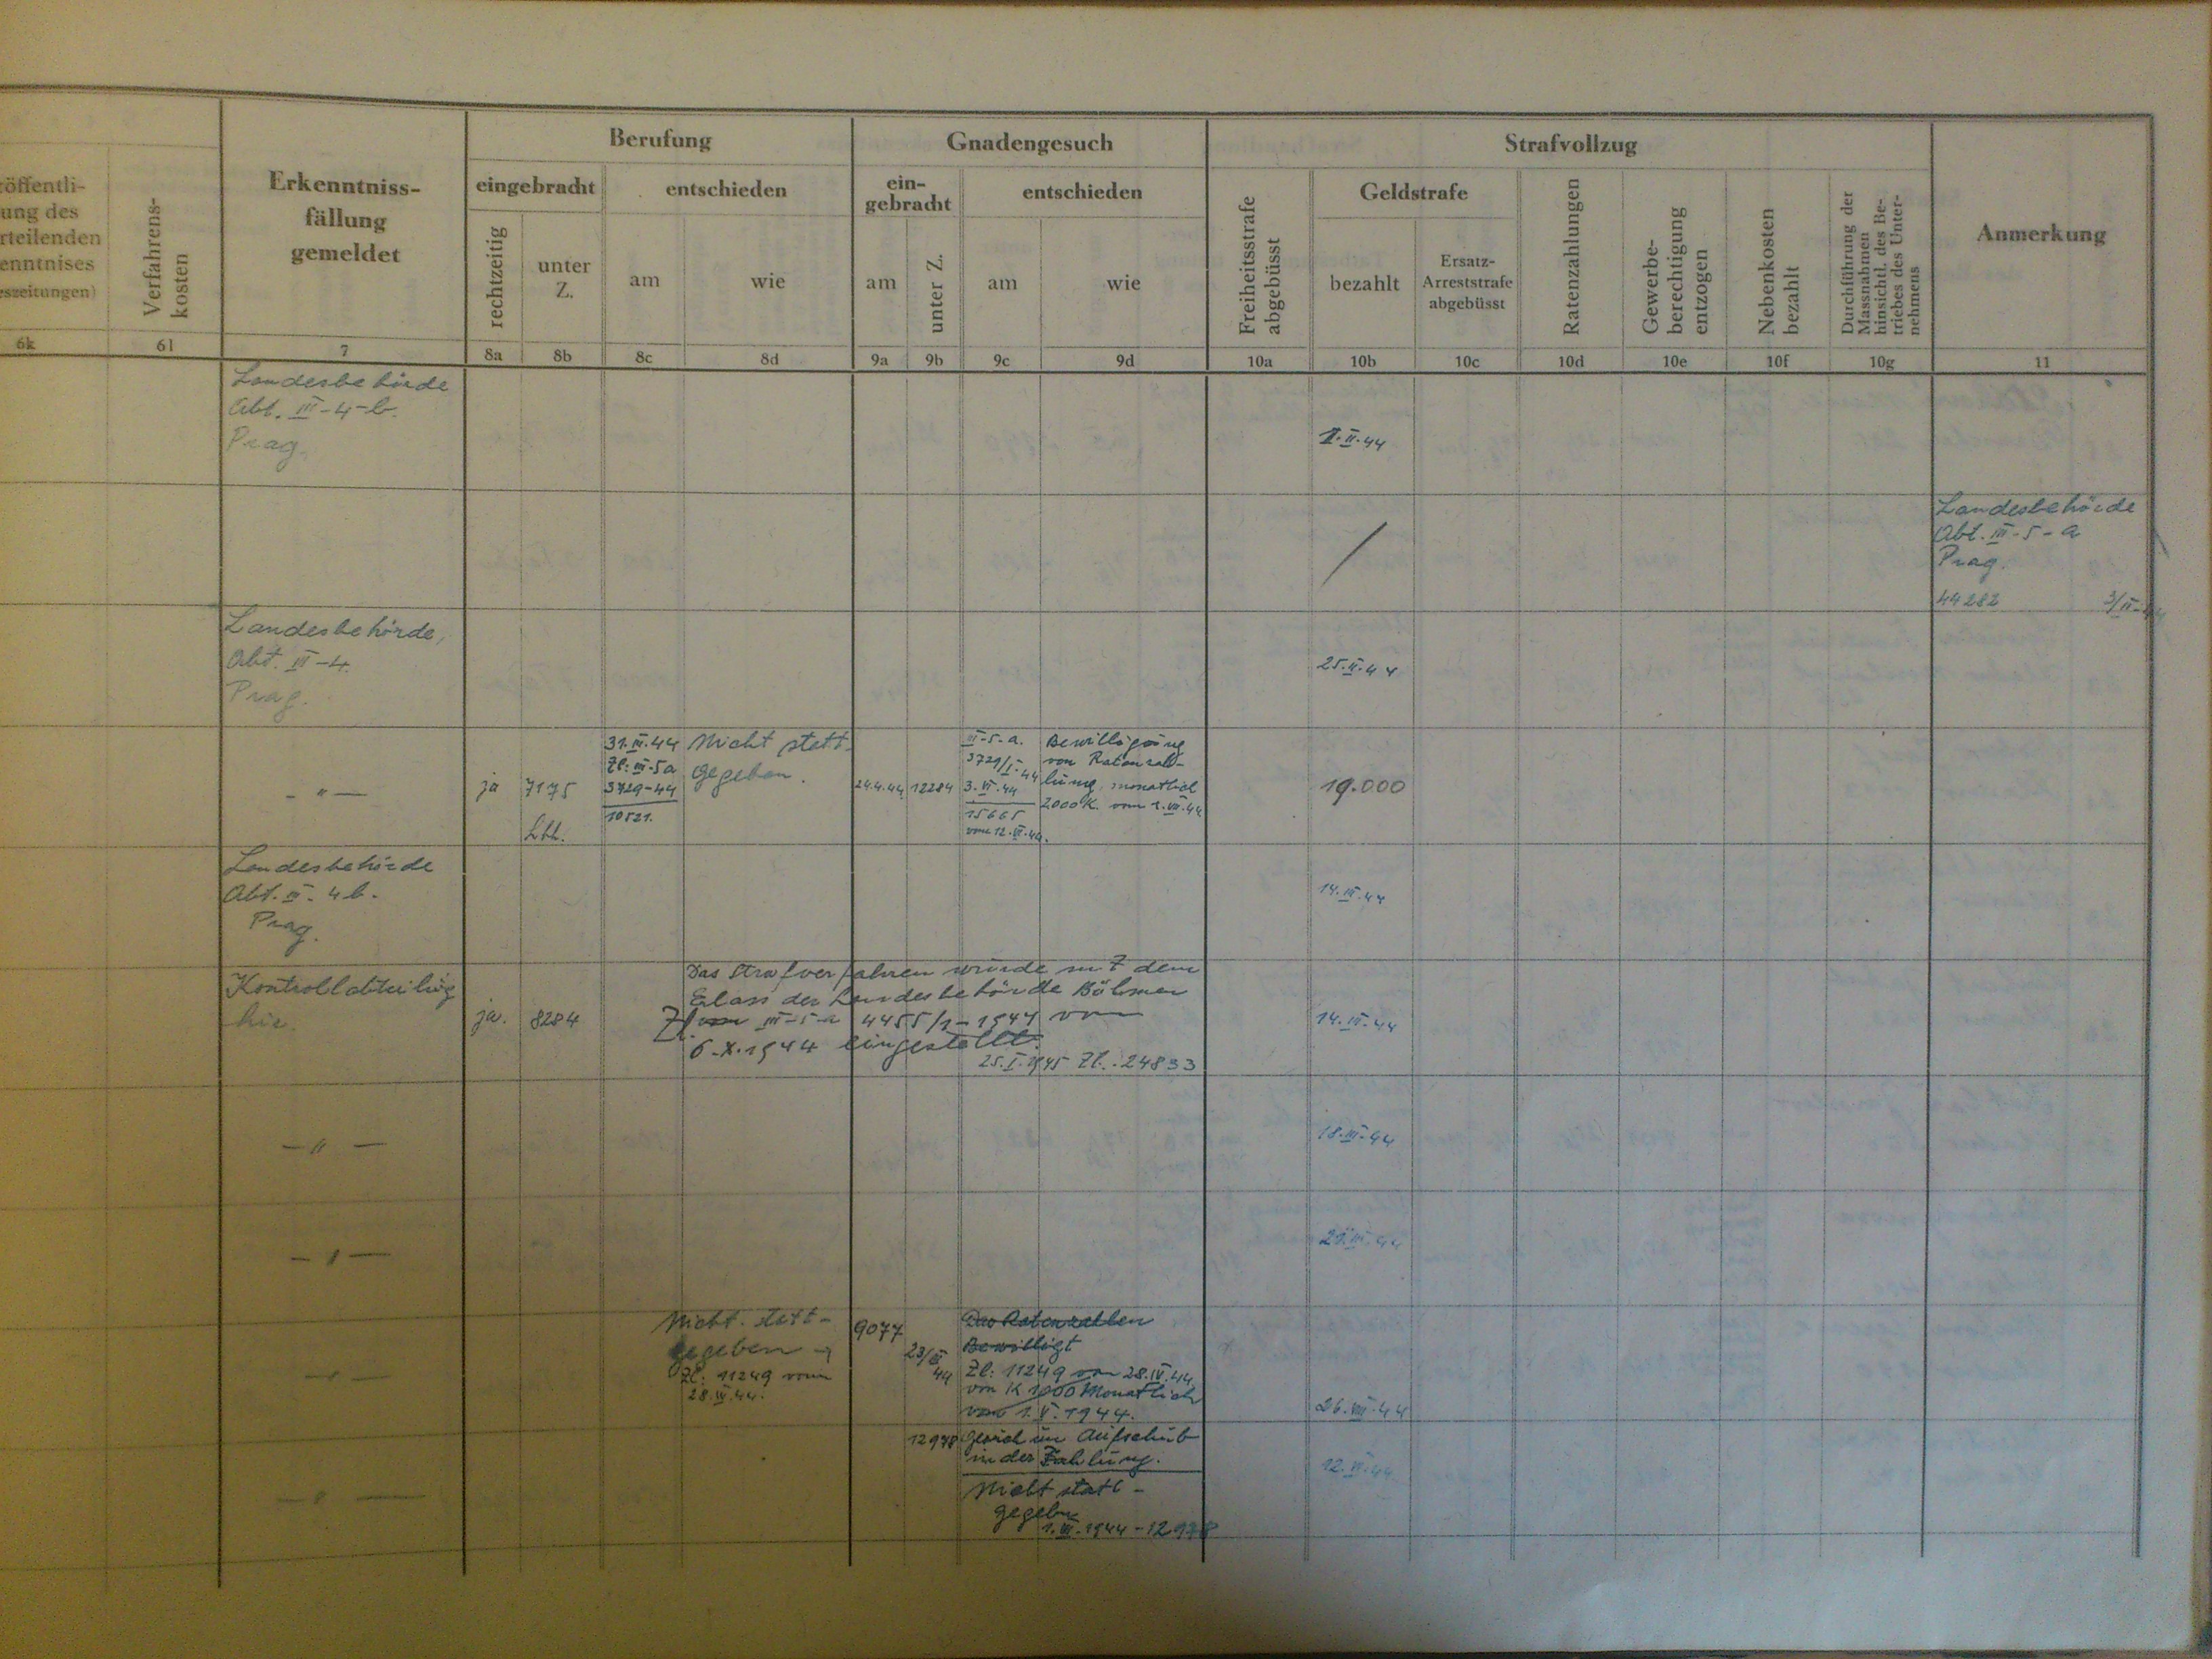 röffentli-
ung des
rteilenden
enntnises
eszeitungen)
6k
Verfahrens-
kosten
6l
Erkenntniss-
fällung
gemeldet
7
Berufung
eingebracht
entschieden
rechtzeitig
unter
Z.
am
wie
8a
8b
8c
8d
Gnadengesuch
ein-
gebracht
entschieden
am
unter Z.
am
wie
9a
9b
9c
9d
Strafvollzug
Freiheitsstrafe
abgebüsst
Geldstrafe
bezahlt
Ersatz-
Arreststrafe
abgebüsst
Ratenzahlungen
Gewerbe-
berechtigung
entzogen
Nebenkosten
bezahlt
Durchführung der
Massnahmen
hinsichtl. des Be-
triebes des Unter-
nehmens
10a
10b
10c
10d
10e
10f
10g
Anmerkung
11
Landesbehörde
Abt. III-4-b.
Prag.
II.44
Landesbehörde
Abt. III-5-a
Prag.
44282
Landesbehörde,
Abt. III-4.
Prag.
25.II.44
- " -
ja
7175
31.III.44
Zl: III-5a
3729-44
10521.
Nicht statt-
gegeben.
24.4.44
12284
III-5-a.
3729/I-44
3.VI.44
15665
vom 12.VI.44.
Bewilligung
von Ratenzah-
lung, monatlich
2000 K. vom 1.VII.44
19.000
Landesbehörde
Abt. III. 4b.
Prag.
14.III.44
Kontrollabteilung
hie.
ja.
8284
Das Strafverfahren wurde mit dem
Erlass der Landesbehörde Böhmen
Zl. III-5-a 4455/1-1944 vom
6.X.1944 eingestellt.
25.I.1945 Zl.: 24833
14.III.44
- " -
18.III.44
- " -
III.44
- " -
Nicht statt-
gegeben
Zl: 11249 vom
28.IV.44.
9077
23/III
44
Das Ratenzahlen
Bewilligt
Zl: 11249 von 28.IV.44
von K 1000 Monatlich
vom 1.V.1944.
26.VIII.44
- " -
12978
Gesuch um Aufschub
in der Zahlung.
Nicht statt-
gegeben
1944-12978
12.VI.44